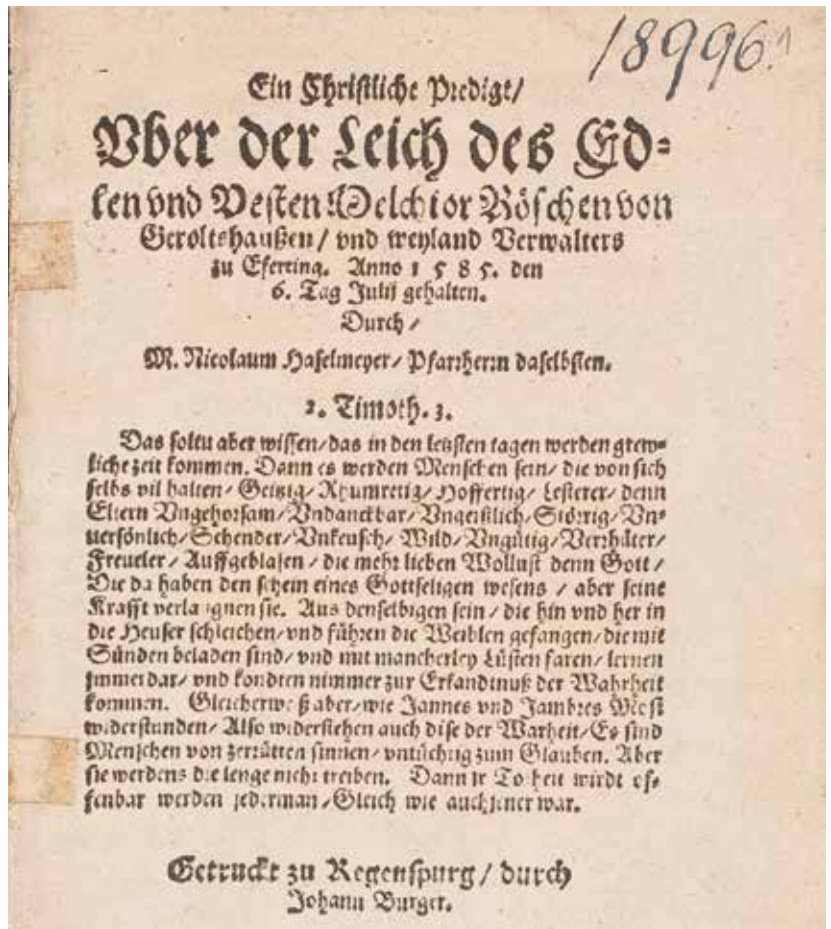 18996.
Ein Christliche Predigt/
Vber der Leich des Ed-
len vnd Vesten Melchior Röschen von
Geroltshaußen/ vnd weyland Verwalters
zu Eferting. Anno 1585. den
6. Tag Julij gehalten.
Durch/
M. Nicolaum Haselmeyer/ Pfarrherrn daselbsten.
2. Timoth. 3.
Das soltu aber wissen/ das in den letzsten tagen werden grew-
liche zeit kommen. Dann es werden Menschen sein/ die von sich
selbs vil halten/ Geitzig/ Rhumretig/ Hoffertig/ Lesterer/ denn
Eltern Vngehorsam/ Vndanckbar/ Vngeistlich/ Störrig/ Vn-
uersönlich/ Schender/ Vnkeusch/ Wild/ Vngütig/ Verrhäter/
Freueler/ Auffgeblasen/ die mehr lieben Wollust denn Gott/
Die da haben den schein eines Gottseligen wesens/ aber seine
Krafft verlaugnen sie. Aus denselbigen sein/ die hin vnd her in
die Heuser schleichen/ vnd führen die Weiblen gefangen/ die mit
Sünden beladen sind/ vnd mit mancherley Lüsten faren/ lernen
jmmerdar/ vnd kondten nimmer zur Erkandtnuß der Wahrheit
kommen. Gleicherweß aber/ wie Jannes vnd Jambres Mosi
widerstunden/ Also widerstehen auch dise der Warheit/ Es sind
Menschen von zerrütten sinnen/ vntüchtig zum Glauben. Aber
sie werdens die lenge nicht treiben. Dann ir Torheit wirdt of-
fenbar werden jederman/ Gleich wie auch jener war.
Getruckt zu Regenspurg/ durch
Johann Burger.